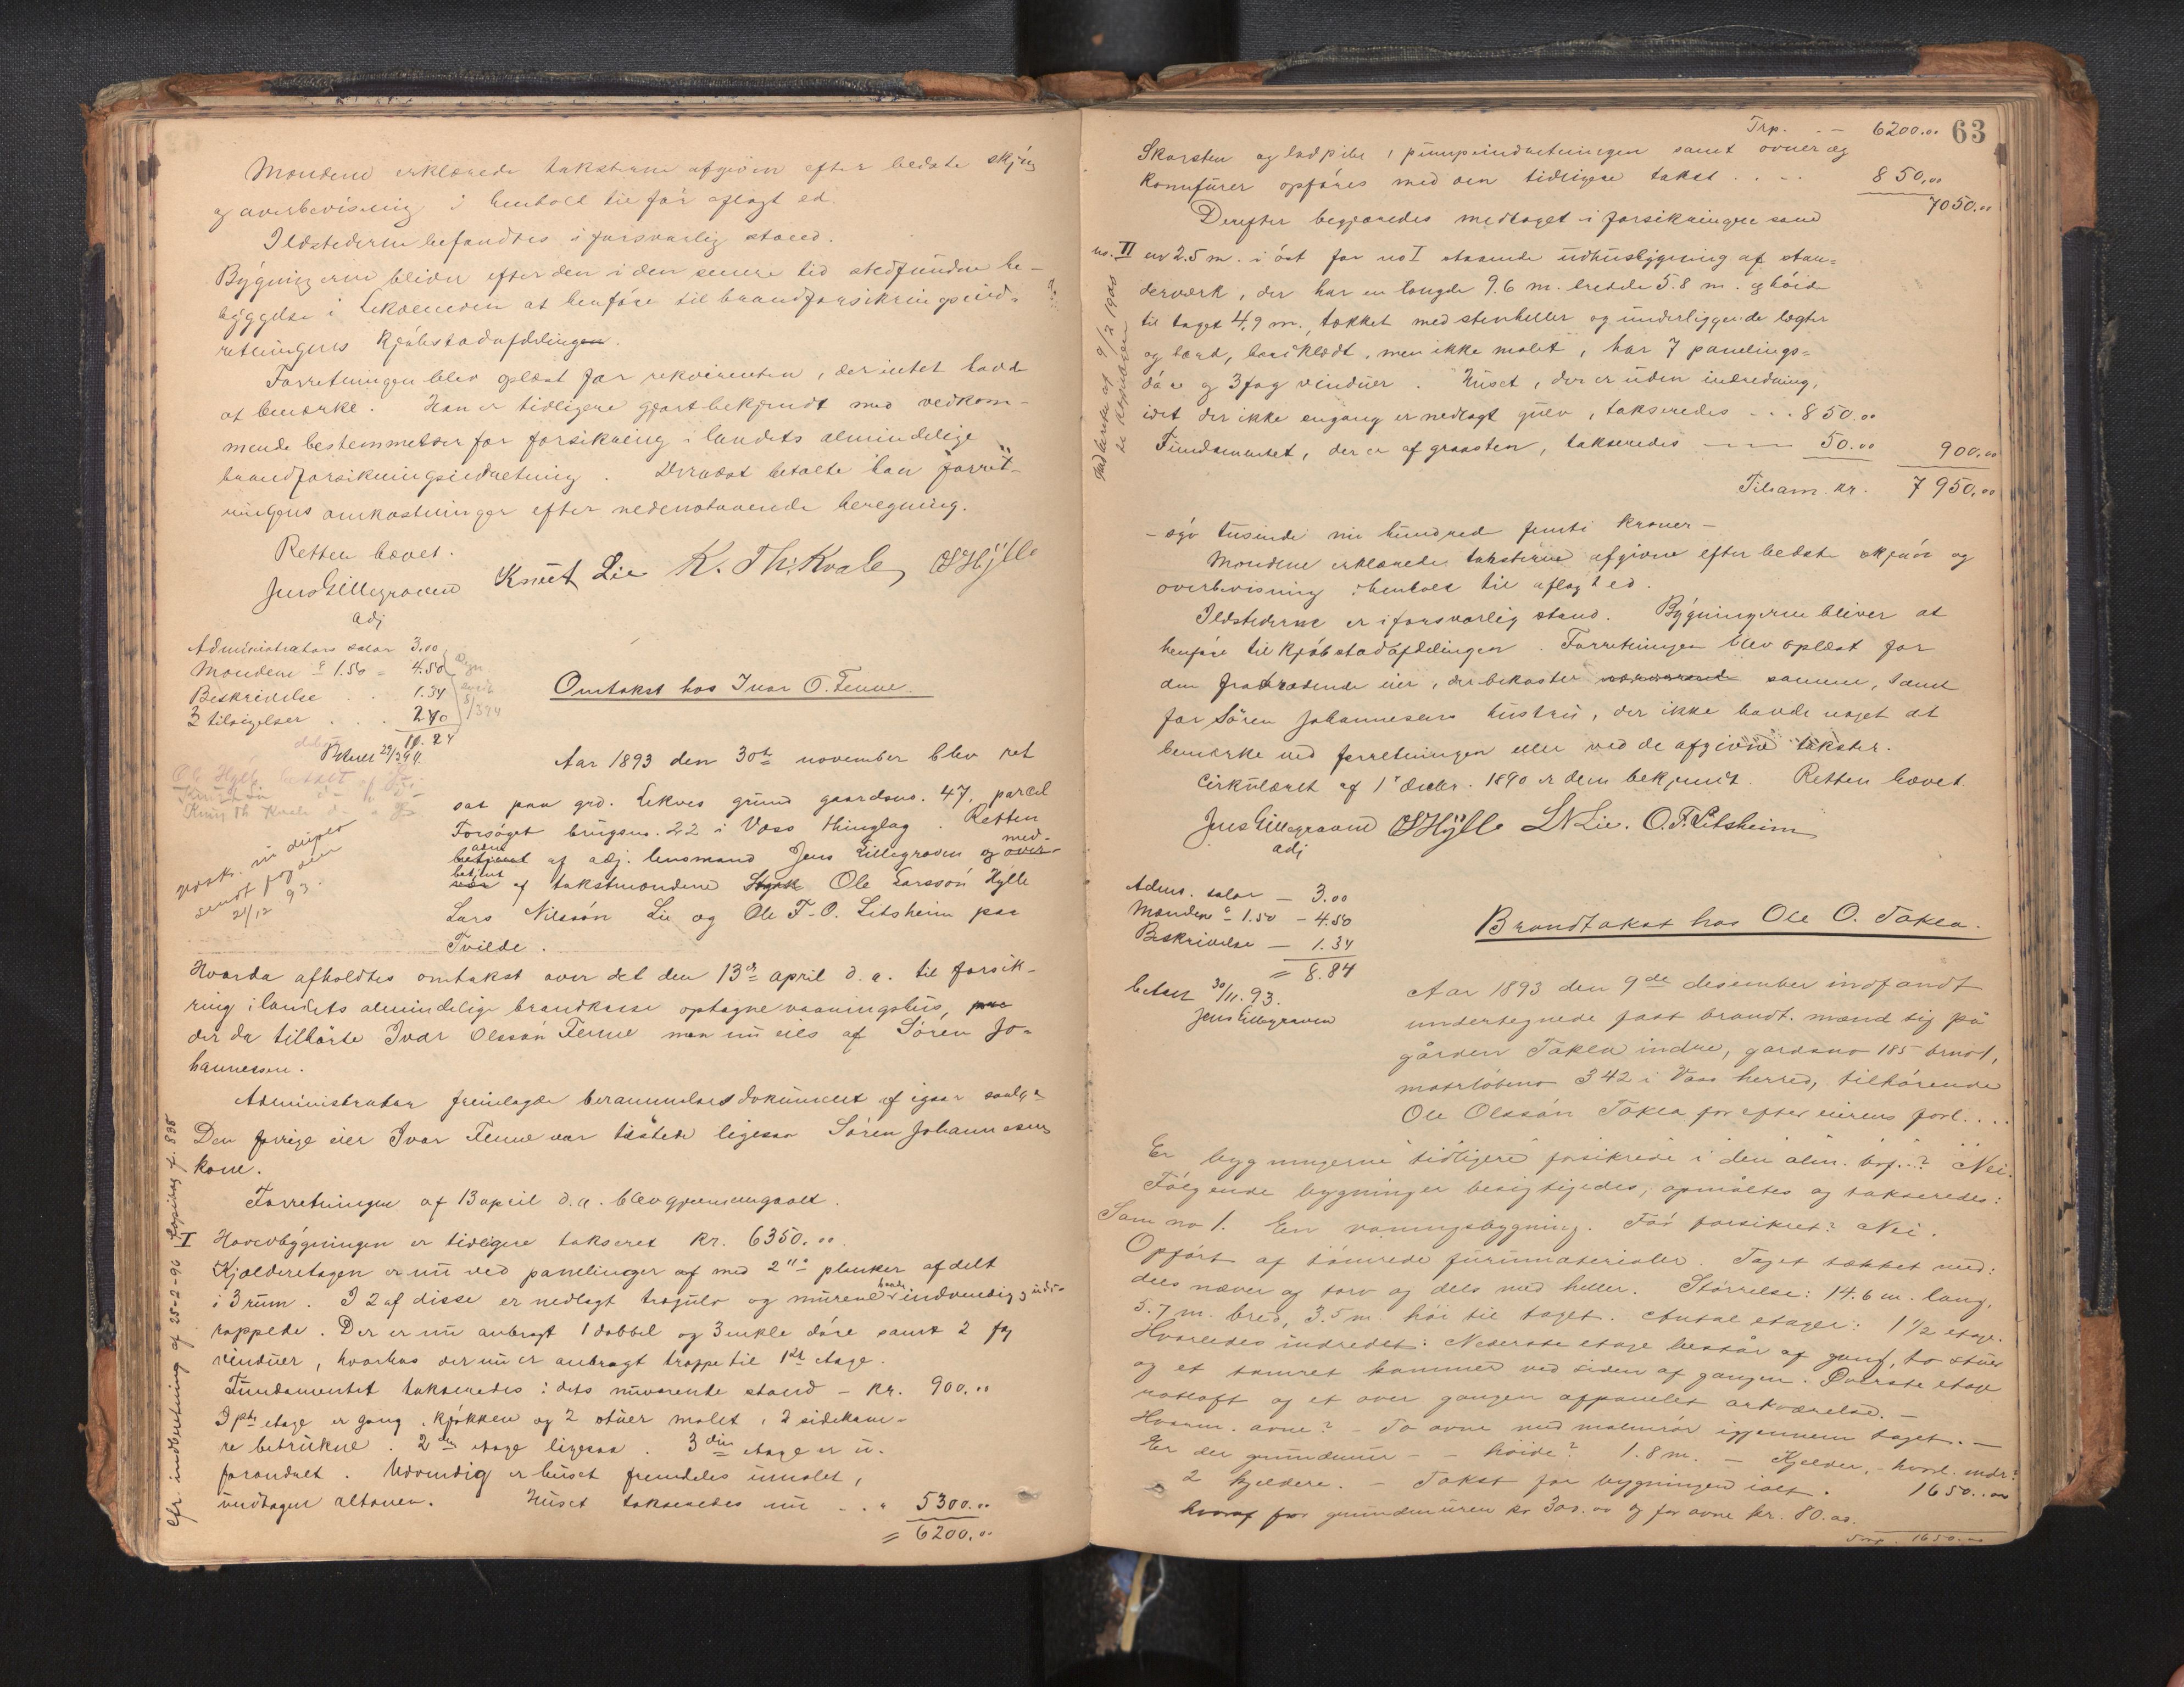 Mændene erklærede taksterne afgivne efter bedste skjøn
og overbevisning i henhold til før aflagt ed.
Ildstederne befandtes i forsvarlig stand.
Bygningerne bliver efter den i den senere tid stedfundne be-
byggelse i Lekvemoen at henføre til brandforsikringsind-
retningens Kjøbstadafdelingen.
Forretningen blev oplæst for rekvirenten, der intet havde
at bemærke. Han er tidligere gjort bekjendt med vedkom-
mende bestemmelser for forsikring i landets almindelige
brandforsikringsindretning. Dernæst betalte han forret-
ningens omkostninger efter nedenstaaende beregning.
Retten hævet.
Jens Gillegraven Knut Lie K. Th. Kvale OLHylle
adj
Administrators salar 3.00
Mændene à 1.50 = 4.50
Beskrivelse . . 1.34
3 tilsigelser . . . 2.40
11.24
Omtakst hos Ivar O. Tenne.
Aar 1893 den 30te november blev ret
sat paa grd. Lekves grund gaardsno. 47, parcel
Forsøget brugsno. 22 i Voss thinglag. Retten
adm. af adj. lensmand Jens Gillegraven og med-
betjent af takstmændene Ole Larssøn Hylle
Lars Nilssøn Lie og Ole T. O. Litsheim paa
Tvilde.
udsk. in duplo
sendt fogden
21/12 93.
Hvorda afholdtes omtakst over det den 13de april d. a. til forsik-
ring i landets almindelige brandkasse optagne vaaningshus,
der da tilhørte Ivar Olssøn Tenne men nu eies af Søren Jo-
hannessen.
Administrator fremlagde berammelsesdokument af igaar
Den forrige eier Ivar Tenne var tilstede ligesaa Søren Johannesens
kone.
Forretningen af 13 april d. a. blev gjennemgaaet.
I Hovedbygningen er tidligere takseret kr. 6350.00
Kjælderetagen er nu ved panelinger af med 2" planker afdelt
i 3 rum. I 2 af disse er nedlagt trægulv og murene baade indvendig og udv-
rappede. Der er nu anbragt 1 dobbel og 3 enkle døre samt 2 fag
vinduer, hvorhos der nu er anbragt trappe til 1ste etage.
Fundamentet takseredes i dets nuværende stand - kr. 900.00
I 1ste etage er gang, kjøkken og 2 stuer malet, 2 sidekam-
re betrukne. 2den etage ligesaa. 3die etage er u-
forandret. Udvendig er huset fremdeles umalet,
undtagen altanen. Huset takseredes nu - . " 5300.00
= 6200.00
cfr. indberetning af 25-2-96 kopibog f. 838
63
Trp. . - 6200.00
Skorsten og ladpibe, pumpeindretningen samt ovner og
komfurer opføres med den tidligere takst . . - . 850.00
7050.00
Derefter begjæredes medtaget i forsikringen som
no. II en 2.5 m. i øst for no I staaende udhusbygning af stan-
derværk, der har en længde 9.6 m. bredde 5.8 m. og høide
til taget 4.9 m., tækket med stenheller og underliggende lægter
og bord, bordklædt, men ikke malet, har 7 panelings-
døre og 3 fag vinduer. Huset, der er uden indredning,
idet der ikke engang er nedlagt gulv, takseredes - . . 850.00
Fundamentet, der er af graasten, takseredes - 50.00 900.00
Tilsam. kr. 7950.00
- syv tusinde ni hundrede femti kroner -
Mændene erklærede taksterne afgivne efter bedste skjøn og
overbevisning i henhold til aflagt ed.
Ildstederne er i forsvarlig stand. Bygningerne bliver at
henføre til kjøbstadafdelingen. Forretningen blev oplæst for
den fratrædende eier, der bekoster samme, samt
for Søren Johannesens hustru, der ikke havde noget at
bemærke ved forretningen eller ved de afgivne takster.
Cirkulæret af 1ste decbr. 1890 er dem bekjendt. Retten hævet.
Jens Gillegraven OLHylle LNLie. O.T. Litsheim
adj
Adms. salar - 3.00
Mændene à 1.50 - 4.50
Beskrivelse - 1.34
= 8.84
betalt 30/11. 93.
Jens Gillegraven
Brandtakst hos Ole O. Takla.
Aar 1893 den 9de desember indfandt
undertegnede fast brandt. mænd sig på
gården Takla indre, gardsno 185 brno 1,
matr løbeno 342 i Voss herred, tilhørende
Ole Olssøn Takla for efter eierens forl....
Er bygningerne tidligere forsikrede i den alm. brf..? Nei.
Følgende bygninger besigtigedes, opmåltes og takseredes:
Som no 1. En vaningsbygning. Før forsikret? Nei.
Opført af tømrede furumaterialer. Taget tækket med:
dels næver og torv og dels med heller. Størrelse: 14.6 m. lang,
5.7 m. bred, 3.5 m. høi til taget. Antal etager: 1 1/2 etage.
Hvorledes indredet: Nederste etage består af gang, to stuer
og et tømret kammer ved siden af gangen. Øverste etage
rosloft og et over gangen afpanelet værelse. -
Hvorm. ovne? - To ovne med malmrør igjennem taget. -
Er der grundmur - - høide? 1.8 m. - Kjelder, - hvorl. indr?
2 kjeldere. - Takst for bygningen ialt. 1650.00
hvoraf for grundmuren kr 300.00 og for ovne kr. 80.00.
Trp. 1650.00